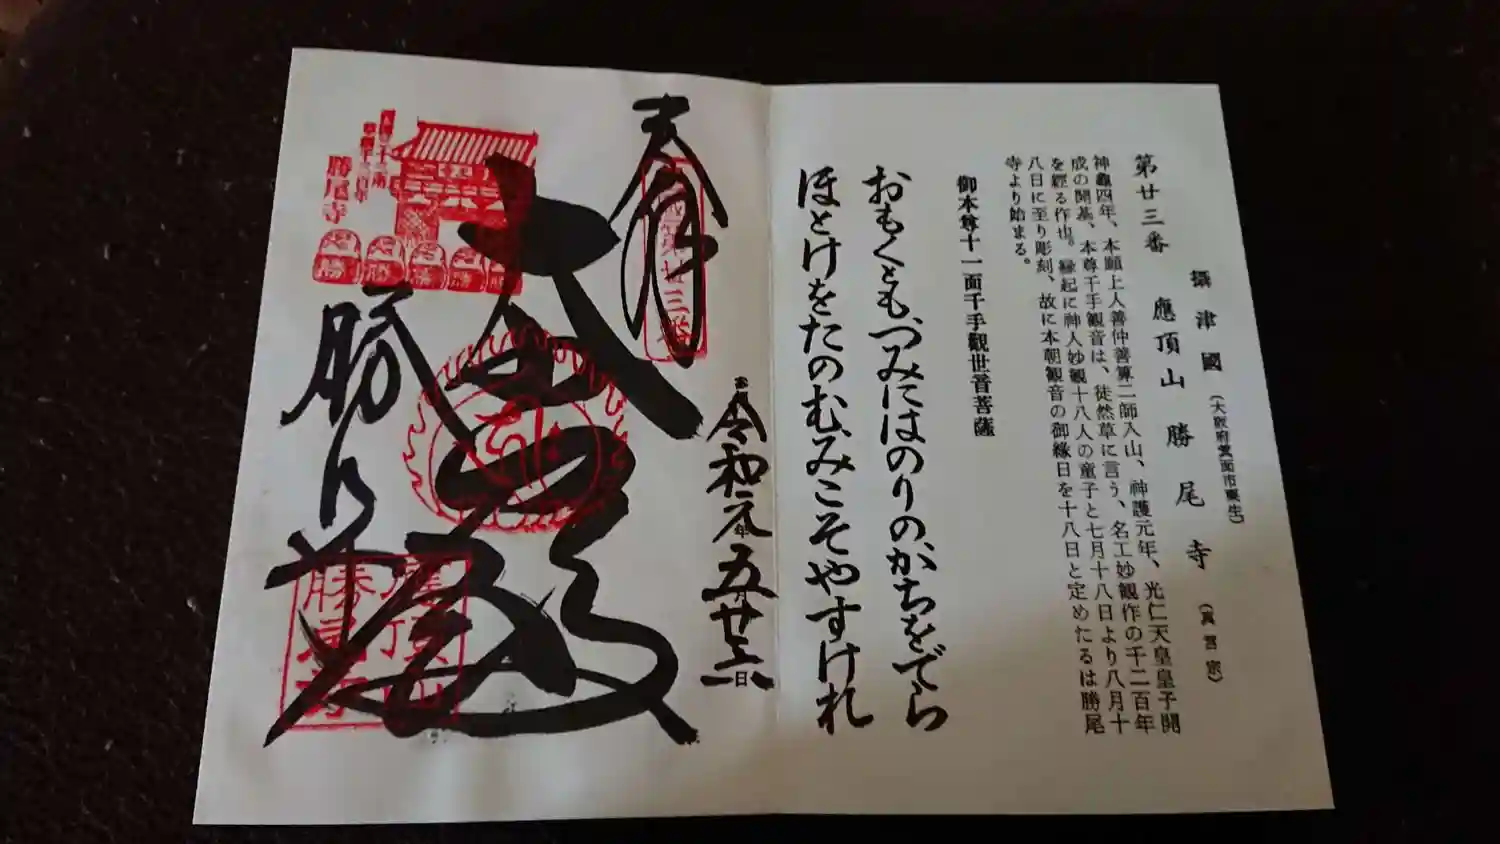 攝津國(大阪府箕面市粟生)
第廿三番 應頂山 勝尾寺(真言宗)
神龜四年、本願上人善仲善算二師入山、神護元年、光仁天皇皇子開
成の開基、本尊千手観音は、徒然草に言う、名工妙観作の千二百年
を經る作也。縁起に神人妙観十八人の童子と七月十八日より八月十
八日に至り彫刻、故に本朝観音の御縁日を十八日と定めたるは勝尾
寺より始まる。
御本尊十一面千手觀世音菩薩
おもくとも、づみにはのりのかちをでら
ほとけをたのむみこそやすけれ
奉拝
令和元年五廿六日
大悲殿
勝尾寺
勝り尾
應頂山
勝尾寺